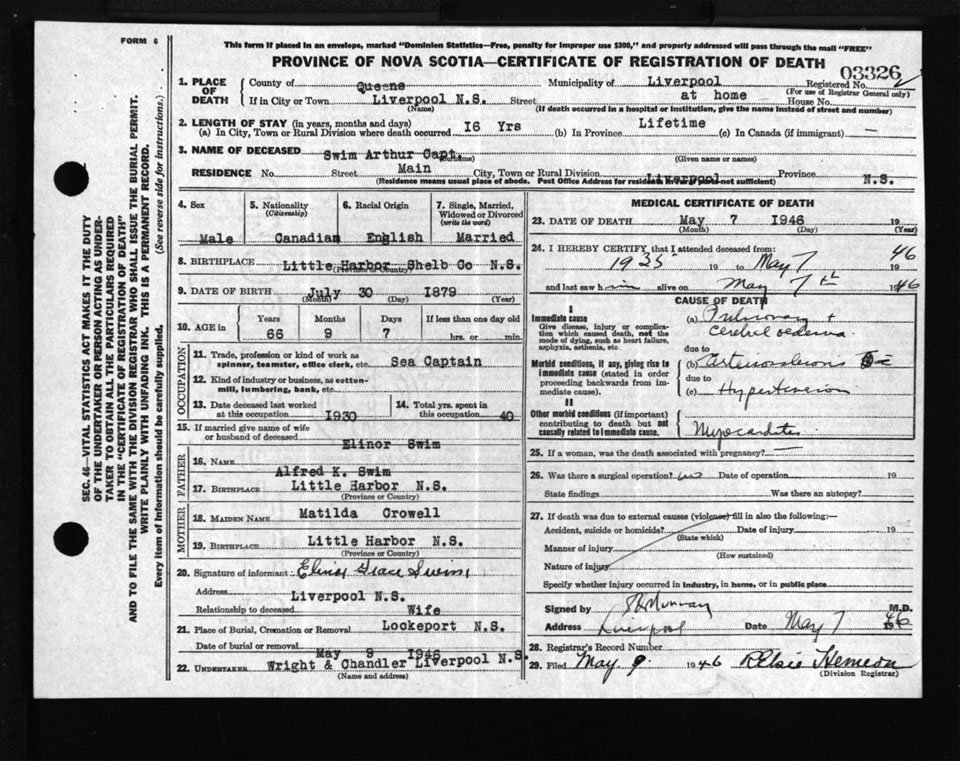 FORM 6
This form if placed in an envelope, marked "Dominion Statistics—Free, penalty for improper use $300," and properly addressed will pass through the mail "FREE"
PROVINCE OF NOVA SCOTIA—CERTIFICATE OF REGISTRATION OF DEATH
03326
1. PLACE OF DEATH
County of Queens Municipality of Liverpool Registered No.
(For use of Registrar General only)
If in City or Town Liverpool N.S. Street at home House No.
(Name) (If death occurred in a hospital or institution, give the name instead of street and number)
2. LENGTH OF STAY (in years, months and days)
(a) In City, Town or Rural Division where death occurred 16 Yrs (b) In Province Lifetime (c) In Canada (if immigrant) —
3. NAME OF DECEASED Swim Arthur Capt.
(Surname) (Given name or names)
RESIDENCE No. Street Main City, Town or Rural Division Liverpool Province N.S.
(Residence means usual place of abode. Post Office Address for residents in rural parts not sufficient)
4. Sex
Male
5. Nationality
(Citizenship)
Canadian
6. Racial Origin
English
7. Single, Married, Widowed or Divorced
(write the word)
Married
8. BIRTHPLACE Little Harbor Shelb Co N.S.
(Province or Country)
9. DATE OF BIRTH July 30 1879
(Month) (Day) (Year)
10. AGE in
Years Months Days If less than one day old
66 9 7 hrs. or min.
OCCUPATION
11. Trade, profession or kind of work as spinner, teamster, office clerk, etc. Sea Captain
12. Kind of industry or business, as cotton-mill, lumbering, bank, etc.
13. Date deceased last worked at this occupation 1930
14. Total yrs. spent in this occupation 40
15. If married give name of wife or husband of deceased Elinor Swim
FATHER
16. NAME Alfred K. Swim
17. BIRTHPLACE Little Harbor N.S.
(Province or Country)
MOTHER
18. MAIDEN NAME Matilda Crowell
19. BIRTHPLACE Little Harbor N.S.
(Province or Country)
20. Signature of informant Grace Swim
Address Liverpool N.S.
Relationship to deceased Wife
21. Place of Burial, Cremation or Removal Lockeport N.S.
Date of burial or removal May 9 1946
22. UNDERTAKER Wright & Chandler Liverpool N.S.
(Name and address)
MEDICAL CERTIFICATE OF DEATH
23. DATE OF DEATH May 7 1946 19
(Month) (Day) (Year)
24. I HEREBY CERTIFY that I attended deceased from:
1935 19 to May 7 1946
and last saw him alive on May 7th 1946
CAUSE OF DEATH
I
Immediate cause
Give disease, injury or complication which caused death, not the mode of dying, such as heart failure, asphyxia, asthenia, etc.
(a) Pulmonary + Cerebral oedema
due to
Morbid conditions, if any, giving rise to immediate cause (stated in order proceeding backwards from immediate cause).
(b) Arteriosclerosis
due to
(c) Hypertension
II
Other morbid conditions (if important) contributing to death but not causally related to immediate cause.
Myocarditis
25. If a woman, was the death associated with pregnancy? —
26. Was there a surgical operation? no Date of operation 19
State findings Was there an autopsy?
27. If death was due to external causes (violence) fill in also the following:—
Accident, suicide or homicide? Date of injury 19
(State which)
Manner of injury
(How sustained)
Nature of injury
Specify whether injury occurred in industry, in home, or in public place
Signed by Murray M.D.
Address Liverpool Date May 7 1946
28. Registrar's Record Number
29. Filed May 9 1946 Elsie Hemeon
(Division Registrar)
SEC. 46—VITAL STATISTICS ACT MAKES IT THE DUTY
OF THE UNDERTAKER OR PERSON ACTING AS UNDER-
TAKER TO OBTAIN ALL THE PARTICULARS REQUIRED
IN THE "CERTIFICATE OF REGISTRATION OF DEATH"
AND TO FILE THE SAME WITH THE DIVISION REGISTRAR WHO SHALL ISSUE THE BURIAL PERMIT.
WRITE PLAINLY WITH UNFADING INK. THIS IS A PERMANENT RECORD.
Every item of information should be carefully supplied. (See reverse side for instructions.)